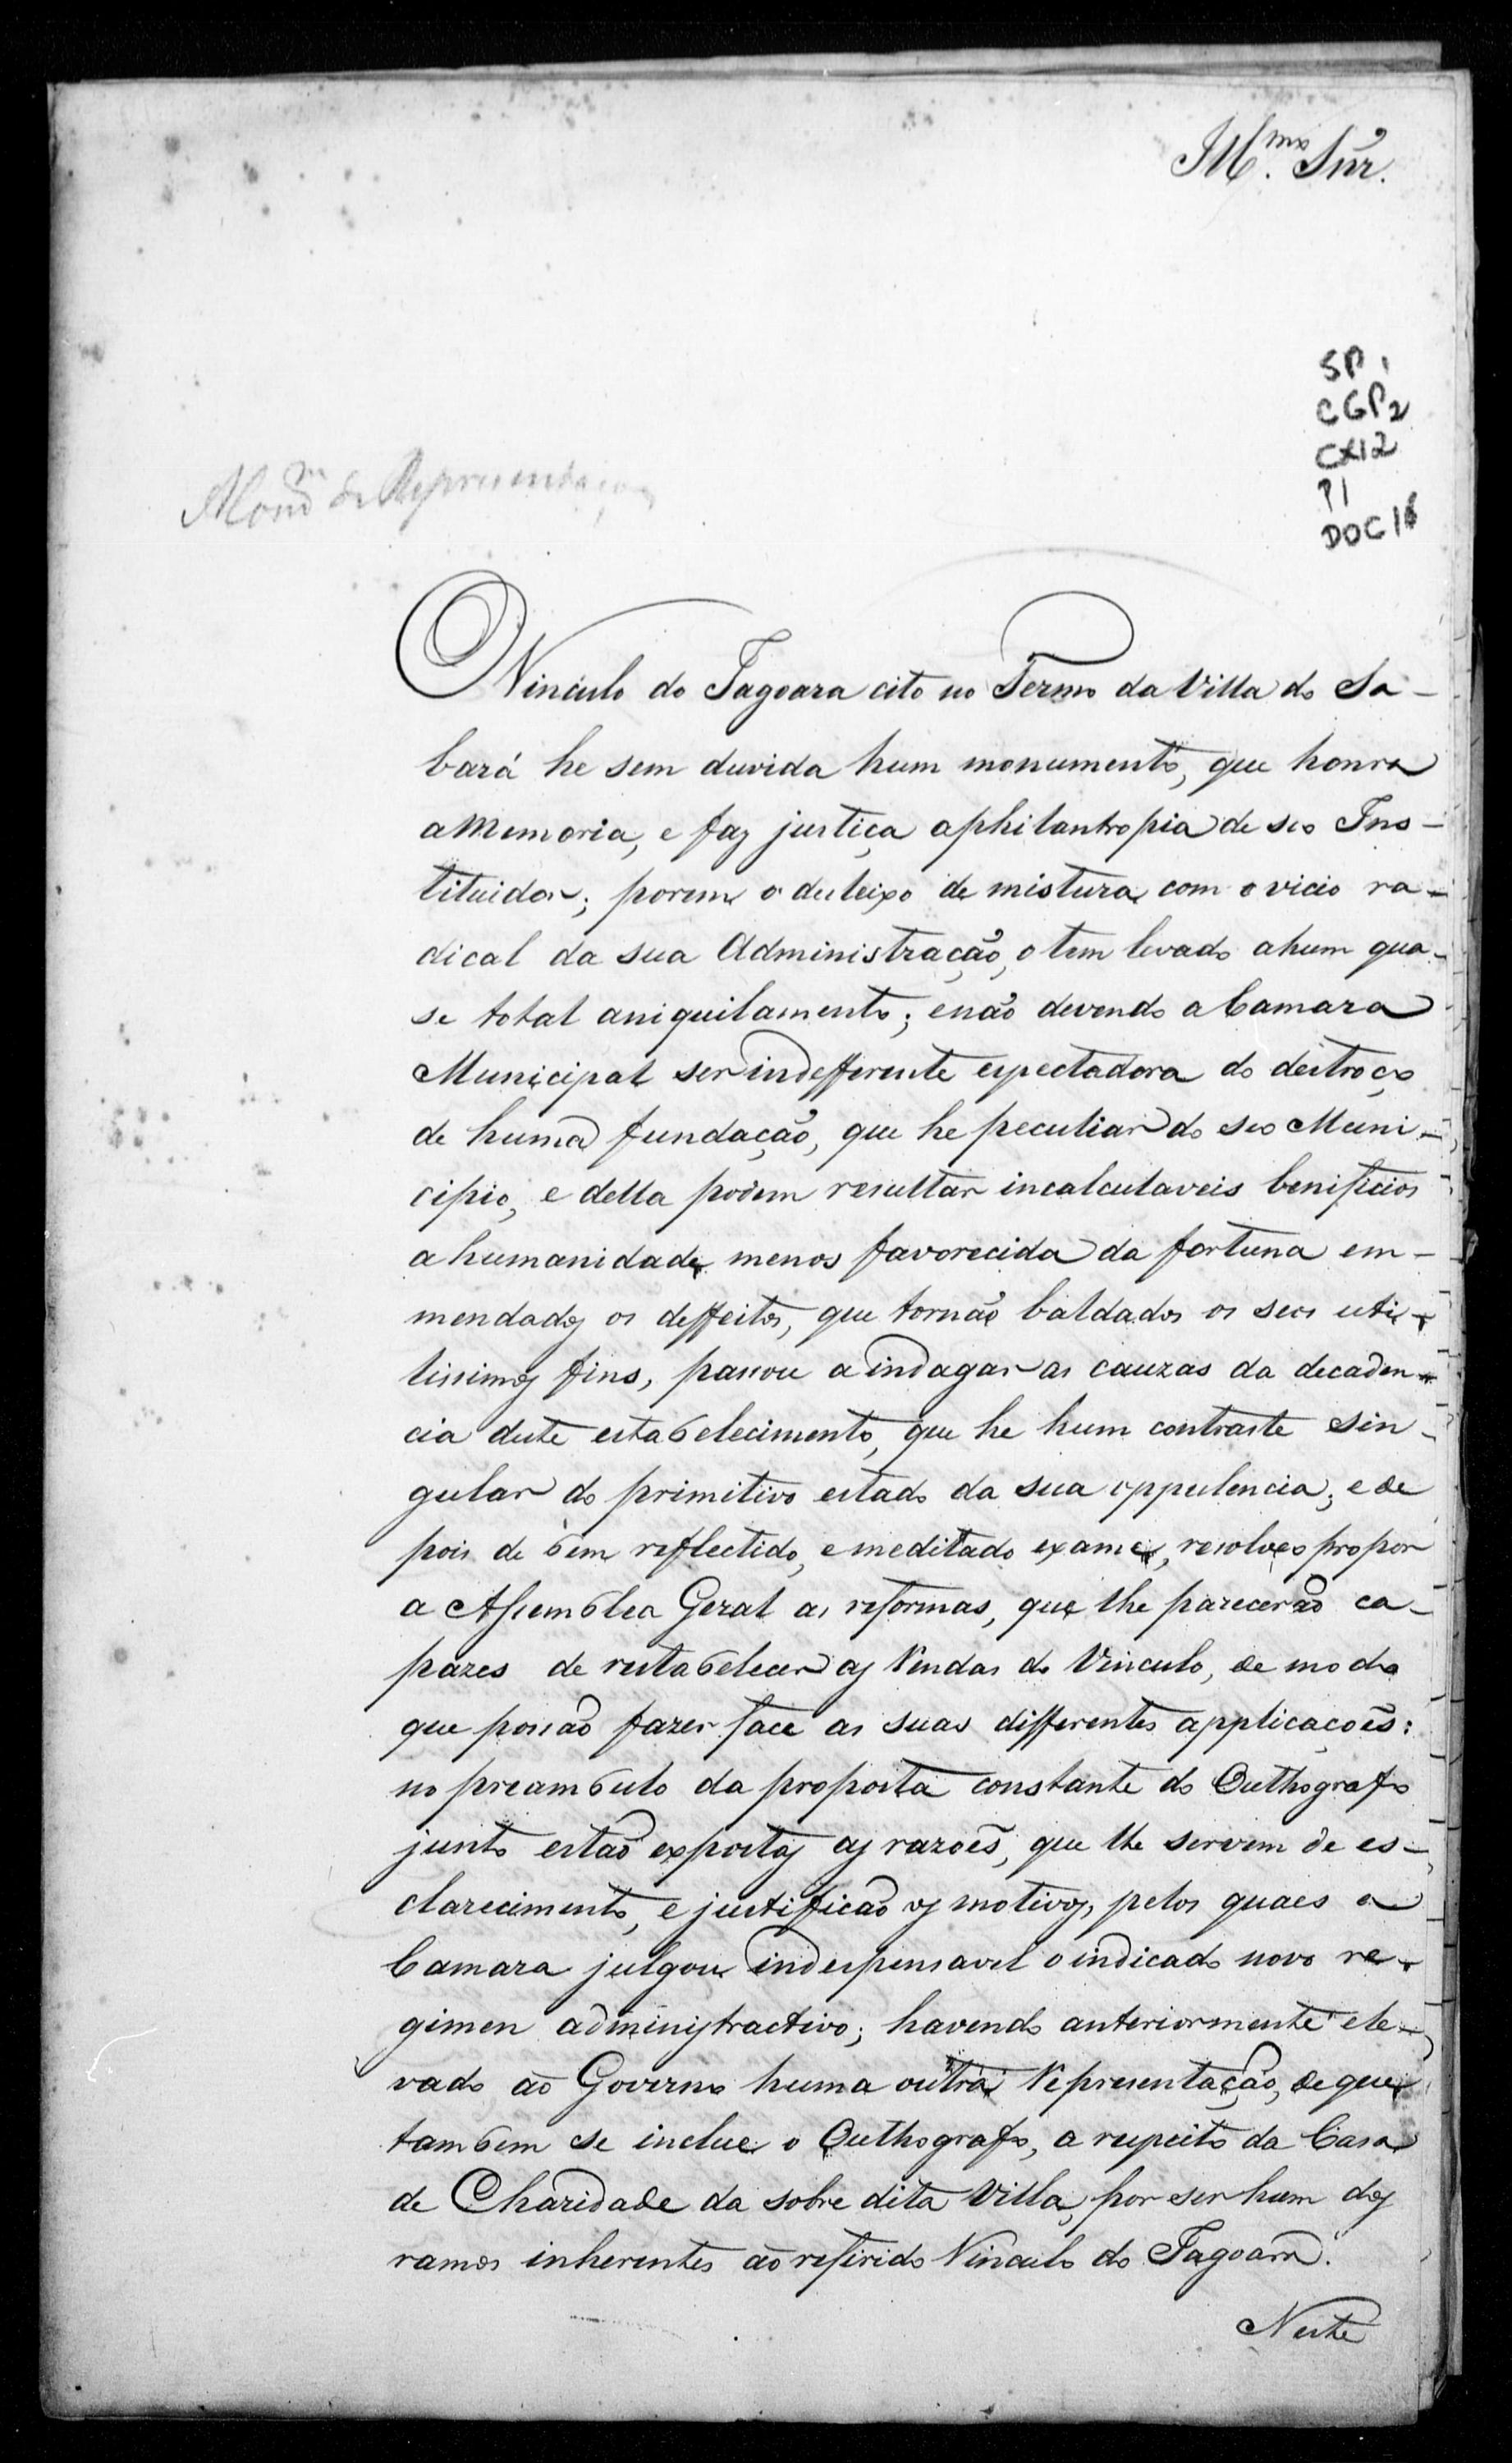 Illmo. Snr.
SP 1
CGP2
CX12
P1
DOC 18
de Representação
O Vinculo do Jagoara cito no Termo da Villa do Sa-
bará he sem duvida hum monumento, que honra
a Memoria, e faz justiça a philantropia de seo Ins-
tituidor; porem o desleixo de mistura com o vicio ra-
dical da sua Administração, o tem levado a hum qua-
se total aniquilamento; e não devendo a Camara
Municipal ser indefferente espectadora do destroço
de huma fundação, que he peculiar do seo Muni-
cipio, e della podem resultar incalculaveis benificios
a humanidade menos favorecida da fortuna em-
mendados os deffeitos, que tornão baldados os seos uti-
lissimos fins, passou a indagar as cauzas da decaden-
cia deste estabelecimento, que he hum contraste sin-
gular do primitivo estado da sua oppulencia; e de
pois de bem reflectido, e meditado exame, resolveo propor
a Assemblea Geral as reformas, que lhe parecerão ca-
pazes de restabelecer as Rendas do Vinculo, de modo
que possão fazer face as suas differentes applicaçoẽs:
no preambulo da proposta constante do Outhografo
junto estão expostas as razoẽs, que lhe servem de es-
clarecimento, e justificão os motivos, pelos quaes a
Camara julgou indespensavel o indicado novo re-
gimen administractivo; havendo anteriormente ele-
vado ao Governo huma outra Representação, de que
tambem se inclue o Outhografo, a respeito da Casa
de Charidade da sobre dita Villa, por ser hum dos
ramos inherentes ao referido Vinculo do Jagoara.
Neste